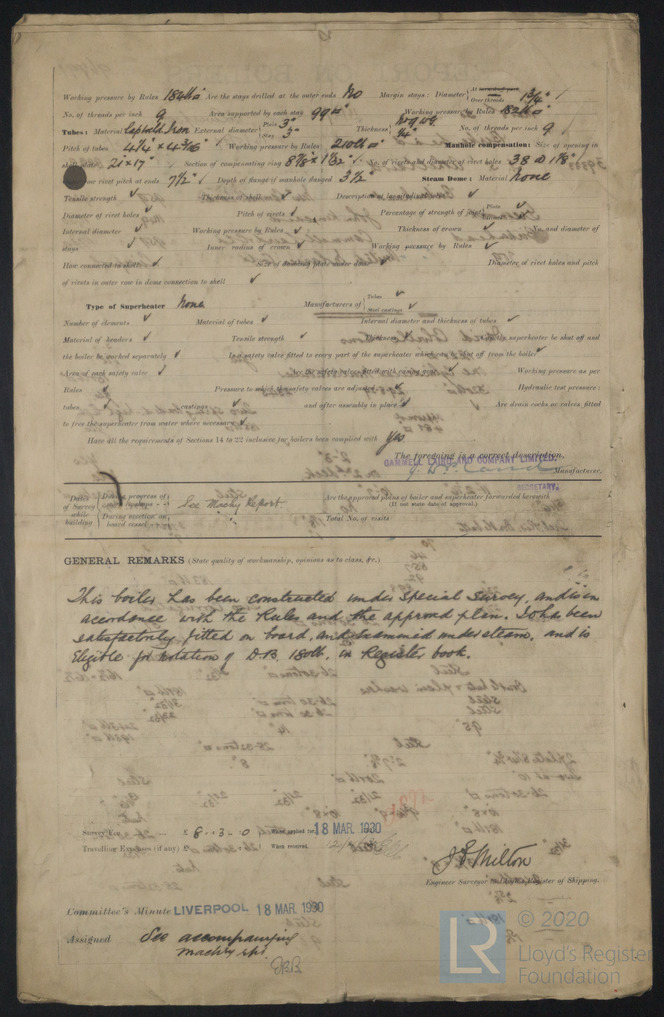 Working pressure by Rules 184 lbs Are the stays drilled at the outer ends No Margin stays: Diameter { At Over threads 1 3/4" /
No. of threads per inch 9 Area supported by each stay 99 □" Working pressure by Rules 182 lbs
Tubes: Material Lapweld. Iron External diameter { Plain 3" Stay 3" Thickness { No. of threads per inch 9 /
Pitch of tubes 4 1/4 x 4 3/16" Working pressure by Rules: 210 lbs Manhole compensation: Size of opening in
shell plate 21 x 17" Section of compensating ring 8 7/8 x 1 1/32" No. of rivets and diameter of rivet holes 38 @ 1 1/8" /
rivet pitch at ends 7 1/2" Depth of flange if manhole flanged 3 1/2" Steam Dome: Material None
Tensile strength Thickness of shell Description of longitudinal joint
Diameter of rivet holes Pitch of rivets Percentage of strength of joint { Plate Rivets
Internal diameter Working pressure by Rules Thickness of crown No. and diameter of
stays Inner radius of crown Working pressure by Rules
How connected to shell Size of doubling plate under dome Diameter of rivet holes and pitch
of rivets in outer row in dome connection to shell
Type of Superheater None Manufacturers of { Tubes Steel castings
Number of elements Material of tubes Internal diameter and thickness of tubes
Material of headers Tensile strength Thickness Can the superheater be shut off and
the boiler be worked separately Is a safety valve fitted to every part of the superheater which can be shut off from the boiler
Area of each safety valve Are the safety valves fitted with easing gear Working pressure as per
Rules Pressure to which the safety valves are adjusted Hydraulic test pressure:
tubes castings and after assembly in place Are drain cocks or valves fitted
to free the superheater from water where necessary
Have all the requirements of Sections 14 to 22 inclusive for boilers been complied with Yes
The foregoing is a correct description,
CAMMELL LAIRD AND COMPANY LIMITED.
Manufacturer.
SECRETARY.
Dates of Survey while building { During progress of work in shops - - During erection on board vessel - - - } See Machy Report. Are the approved plans of boiler and superheater forwarded herewith (If not state date of approval.)
Total No. of visits
GENERAL REMARKS (State quality of workmanship, opinions as to class, &c.)
This boiler has been constructed under Special Survey, and is in
accordance with the Rules and the approved plan. It has been
satisfactorily fitted on board, and examined under steam, and is
eligible for notation of D.B. 180 lb. in Register book.
Survey Fee £ 8 : 3 : 0 When applied for, 18 MAR. 1930
Travelling Expenses (if any) £ : : When received,
J S Milton
Engineer Surveyor to Lloyd's Register of Shipping.
Committee's Minute LIVERPOOL 18 MAR. 1930
Assigned See accompanying
machy rpt.
© 2020
LR
Lloyd's Register
Foundation